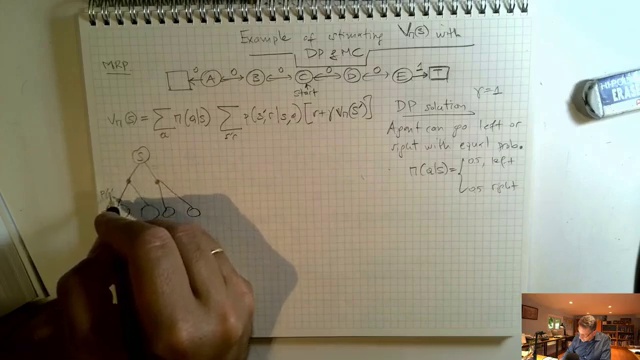 Example of estimating Vπ(s) with
DP & MC
MRP
0 A 0 B 0 C 0 D 0 E 1 T
start
Vπ(s) = Σ π(a|s) Σ p(s',r|s,a) [r+γVπ(s')]
a s'r
DP solution γ=1
Agent can go left or
right with equal prob.
π(a|s)= { 0.5, left
0.5 right
S
ERAS